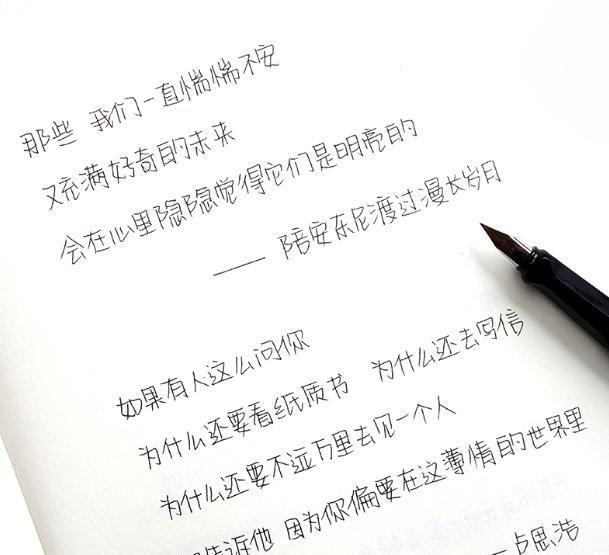 那些 我们一直惴惴不安
又充满好奇的未来
会在心里隐隐觉得它们是明亮的
—— 陪安东尼渡过漫长岁月
如果有人这么问你
为什么还要看纸质书 为什么还去写信
为什么还要不远万里去见一个人
告诉他 因为你偏要在这薄情的世界里
卢思浩